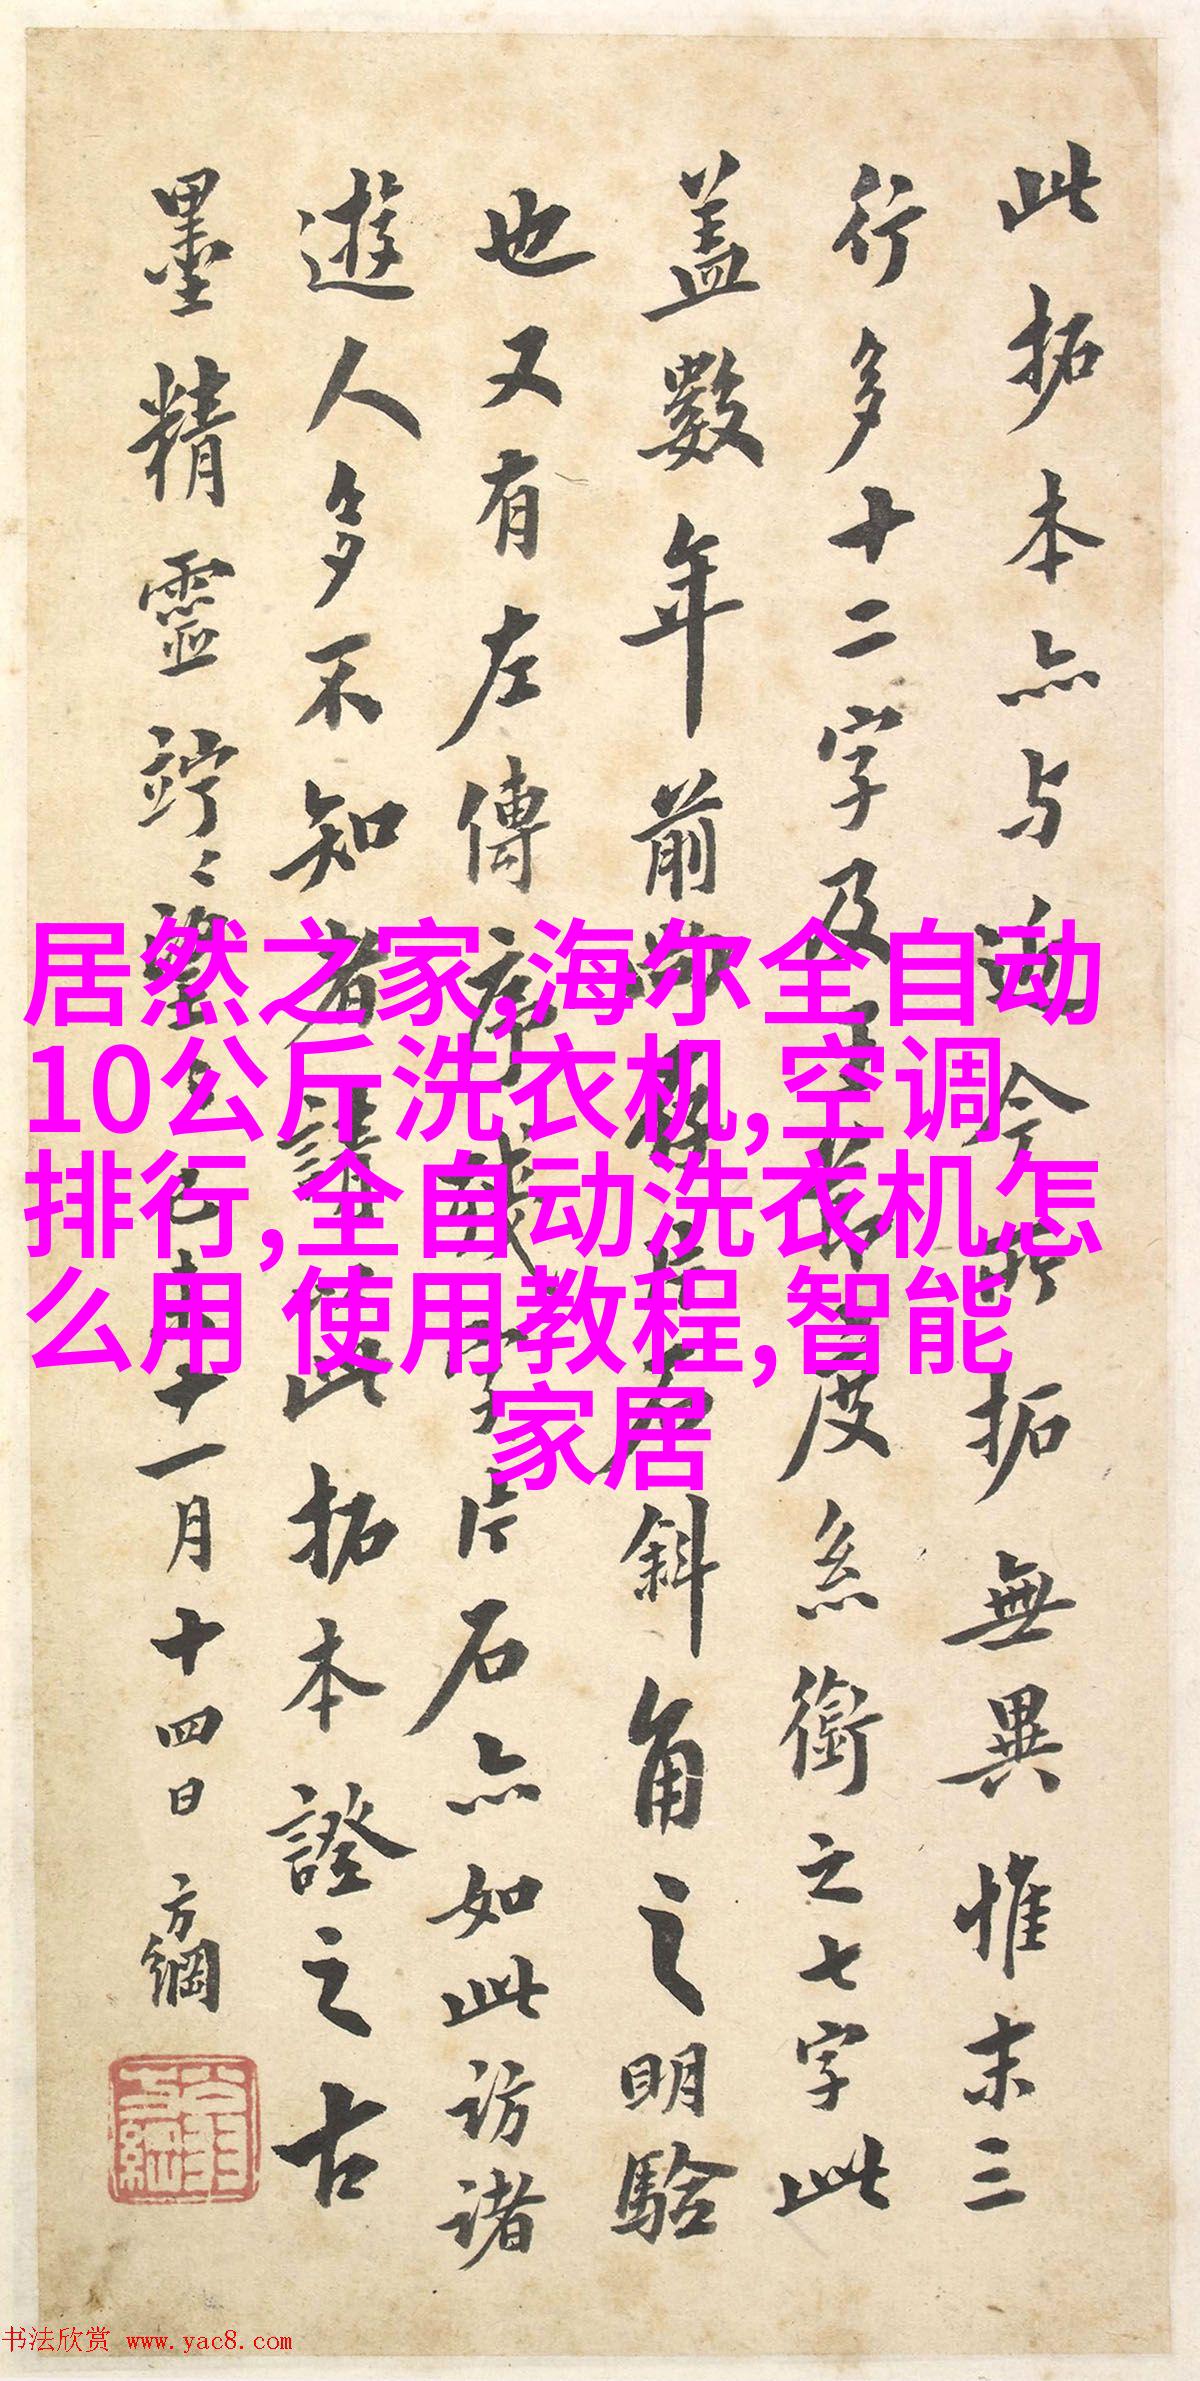 此拓本亦与近今所拓無異惟末三
行多十二字及
度系銜之七字此
蓋數年前
斜角之明驗
也又有左傳序殘字片石亦如此訪諸
遊人多不知者
此拓本證之古
墨精靈竚〻
十一月十四日方綱
居然之家,海尔全自动
10公斤洗衣机,空调
排行,全自动洗衣机怎
么用 使用教程,智能
家居
书法欣赏 www.yac8.com